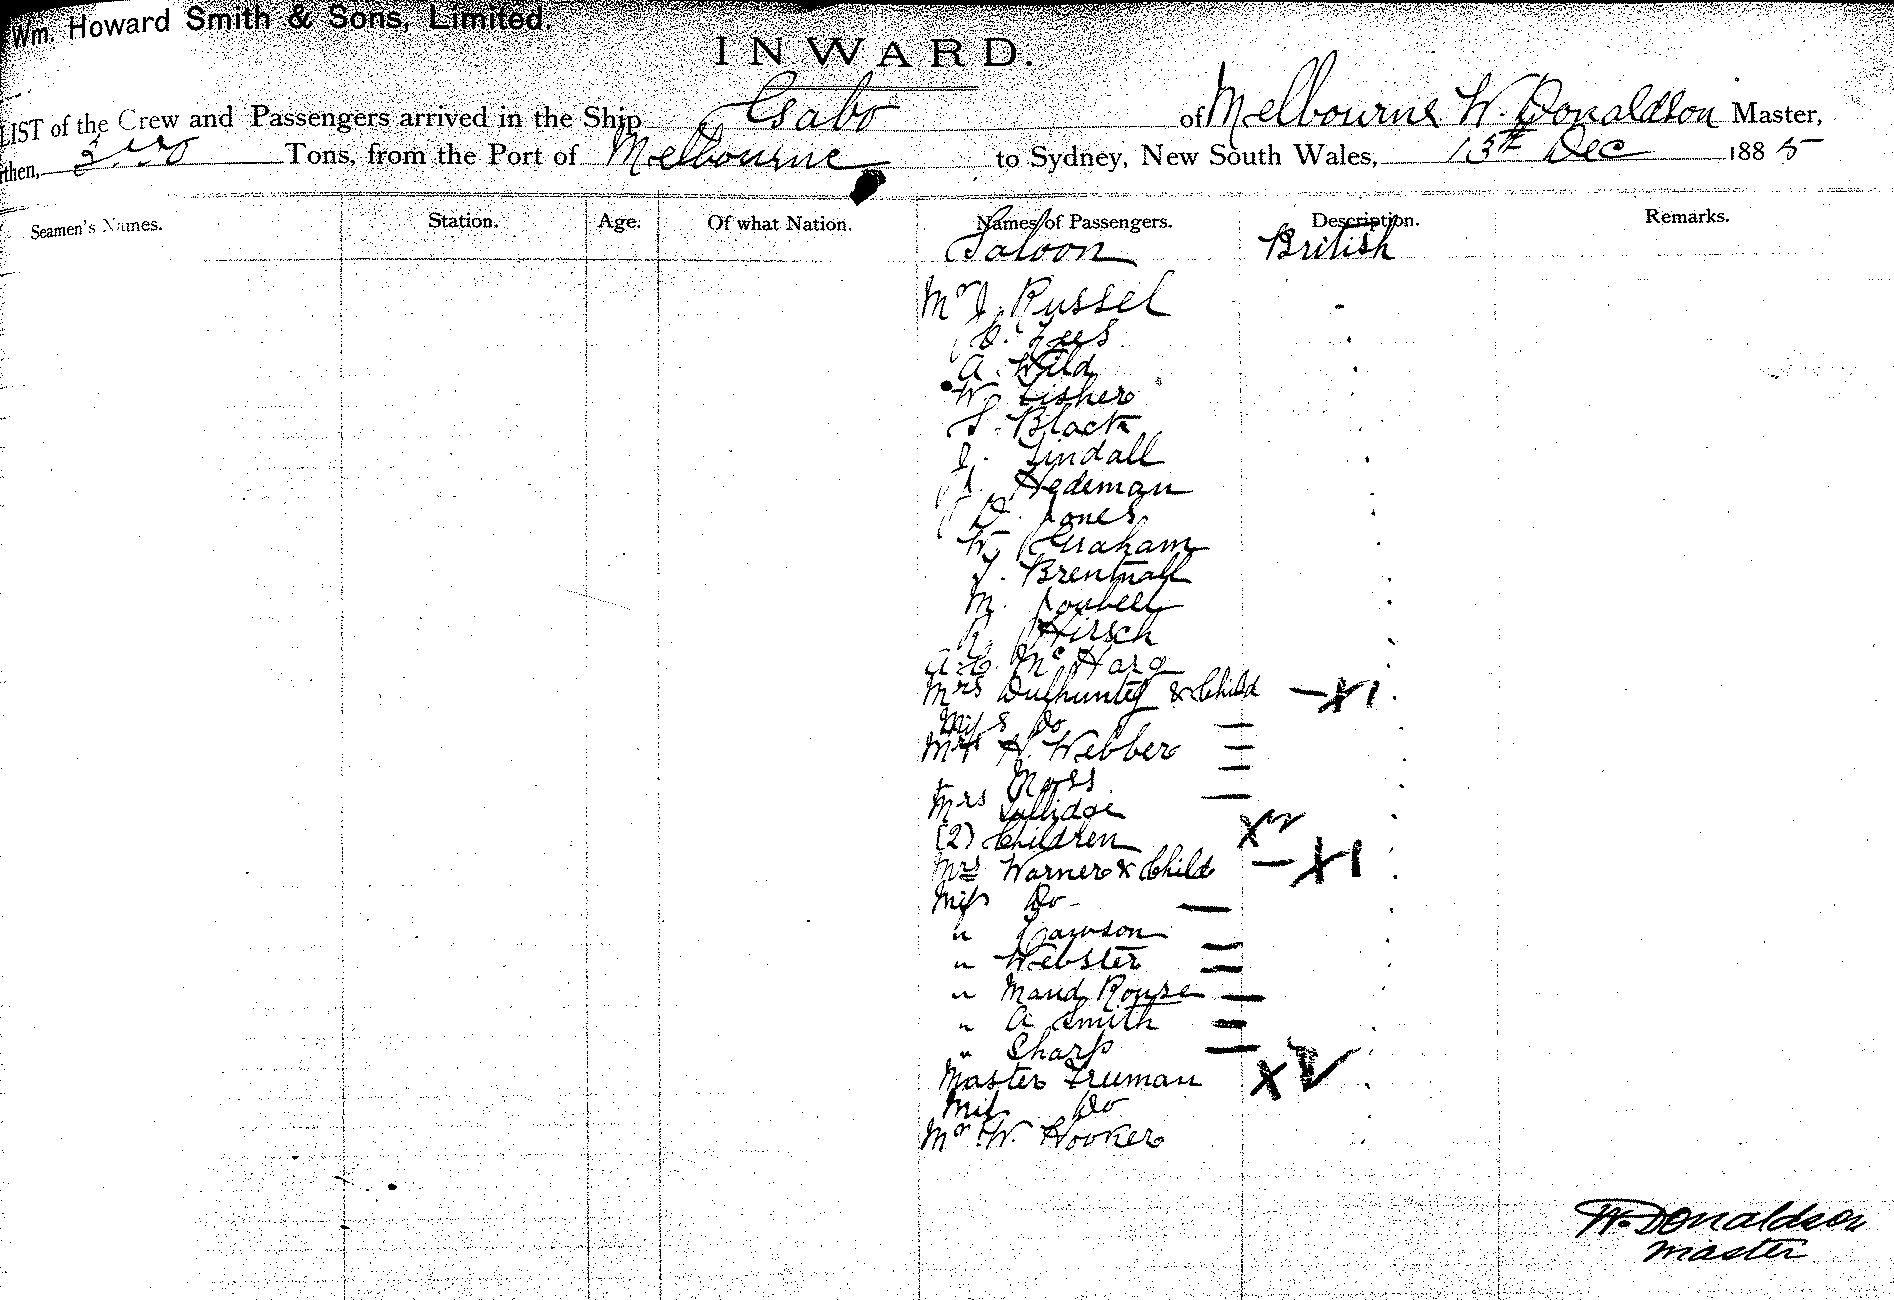 Wm. Howard Smith & Sons, Limited.
INWARD.
LIST of the Crew and Passengers arrived in the Ship Gabo of Melbourne W. Donaldson Master,
then, Tons, from the Port of Melbourne to Sydney, New South Wales, 13th Dec 1885
Seamen's Names. Station. Age. Of what Nation. Names of Passengers. Description. Remarks.
Saloon British
Mr J. Russel
Lees
A. Wild
W. Fisher
S. Black
J. Lindall
J. Hedeman
D. Jones
W. Graham
J. Brentnall
M.
R. Hirsch
A.C. McHarg
Mrs Dulhunty & Child — X 1
Miss Do —
Mrs H. Webber —
Moss —
Mrs Tullidge —
(2) Children X
Mrs Warner & Child — X 1
Miss Do —
" Lawson —
" Webster —
" Maud Rouse —
" A Smith —
" Sharp —
Master Truman X
Miss Do
Mr W. Hooker
W. Donaldson
Master